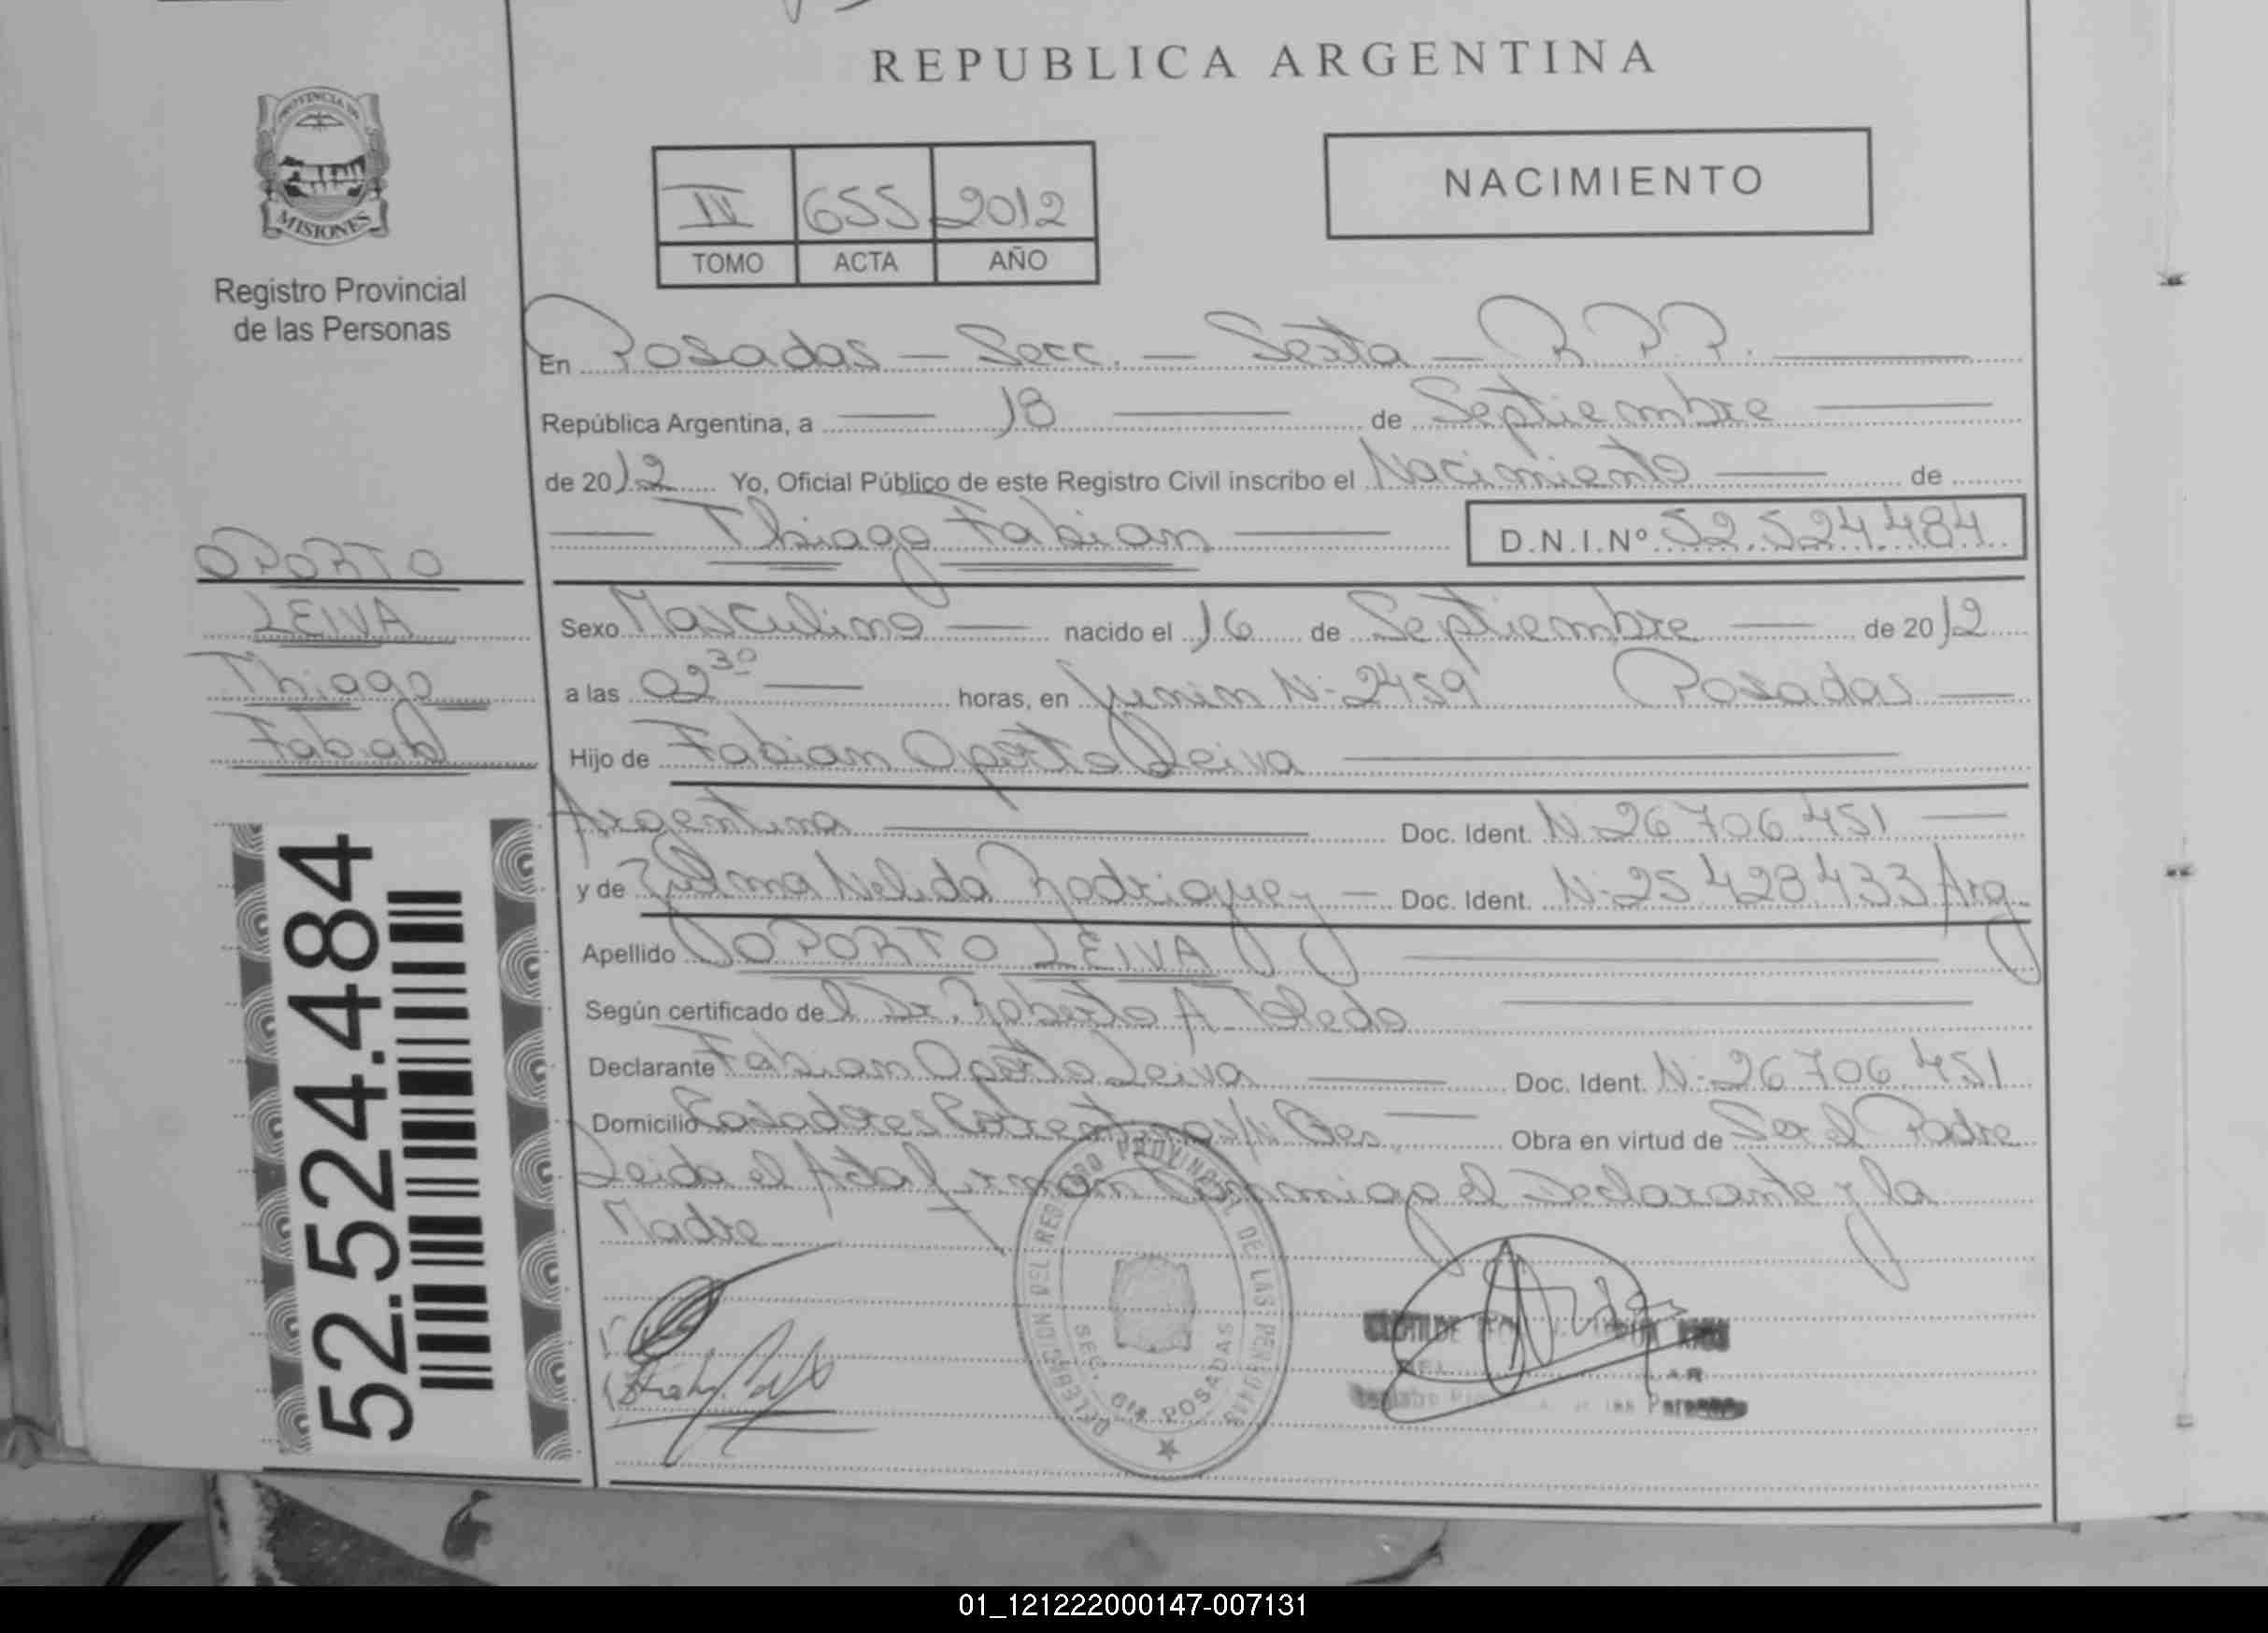 REPUBLICA ARGENTINA
PROVINCIA DE
MISIONES
Registro Provincial
de las Personas
NACIMIENTO
655 2012
TOMO ACTA AÑO
En Posadas — Secc. — Sexta — R.P.P. —
República Argentina, a — 18 — de Septiembre —
de 2012 Yo, Oficial Público de este Registro Civil inscribo el Nacimiento — de
— Thiago Fabian — D.N.I.Nº 52.524.484
OPORTO
LEIVA
Thiago
Fabian
Sexo Masculino — nacido el 16 de Septiembre — de 2012
a las 02 30 — horas, en Junin N- 2459 Posadas —
Hijo de Fabian Oporto Leiva —
Argentina — Doc. Ident. N- 26 706 451 —
y de Zulma Nelida Rodriguez — Doc. Ident. N- 25 428 433 Arg
Apellido OPORTO LEIVA —
Según certificado del Dr. Roberto A. Toledo —
Declarante Fabian Oporto Leiva — Doc. Ident. N- 26 706 451
Domicilio — Obra en virtud de Ser el Padre
Leida el Acta firman conmigo el Declarante y la
Madre
52.524.484
DELEGACION DEL REGISTRO PROVINCIAL DE LAS PERSONAS
SEC. 6ta POSADAS
CLOTILDE
de las Personas
01_121222000147-007131